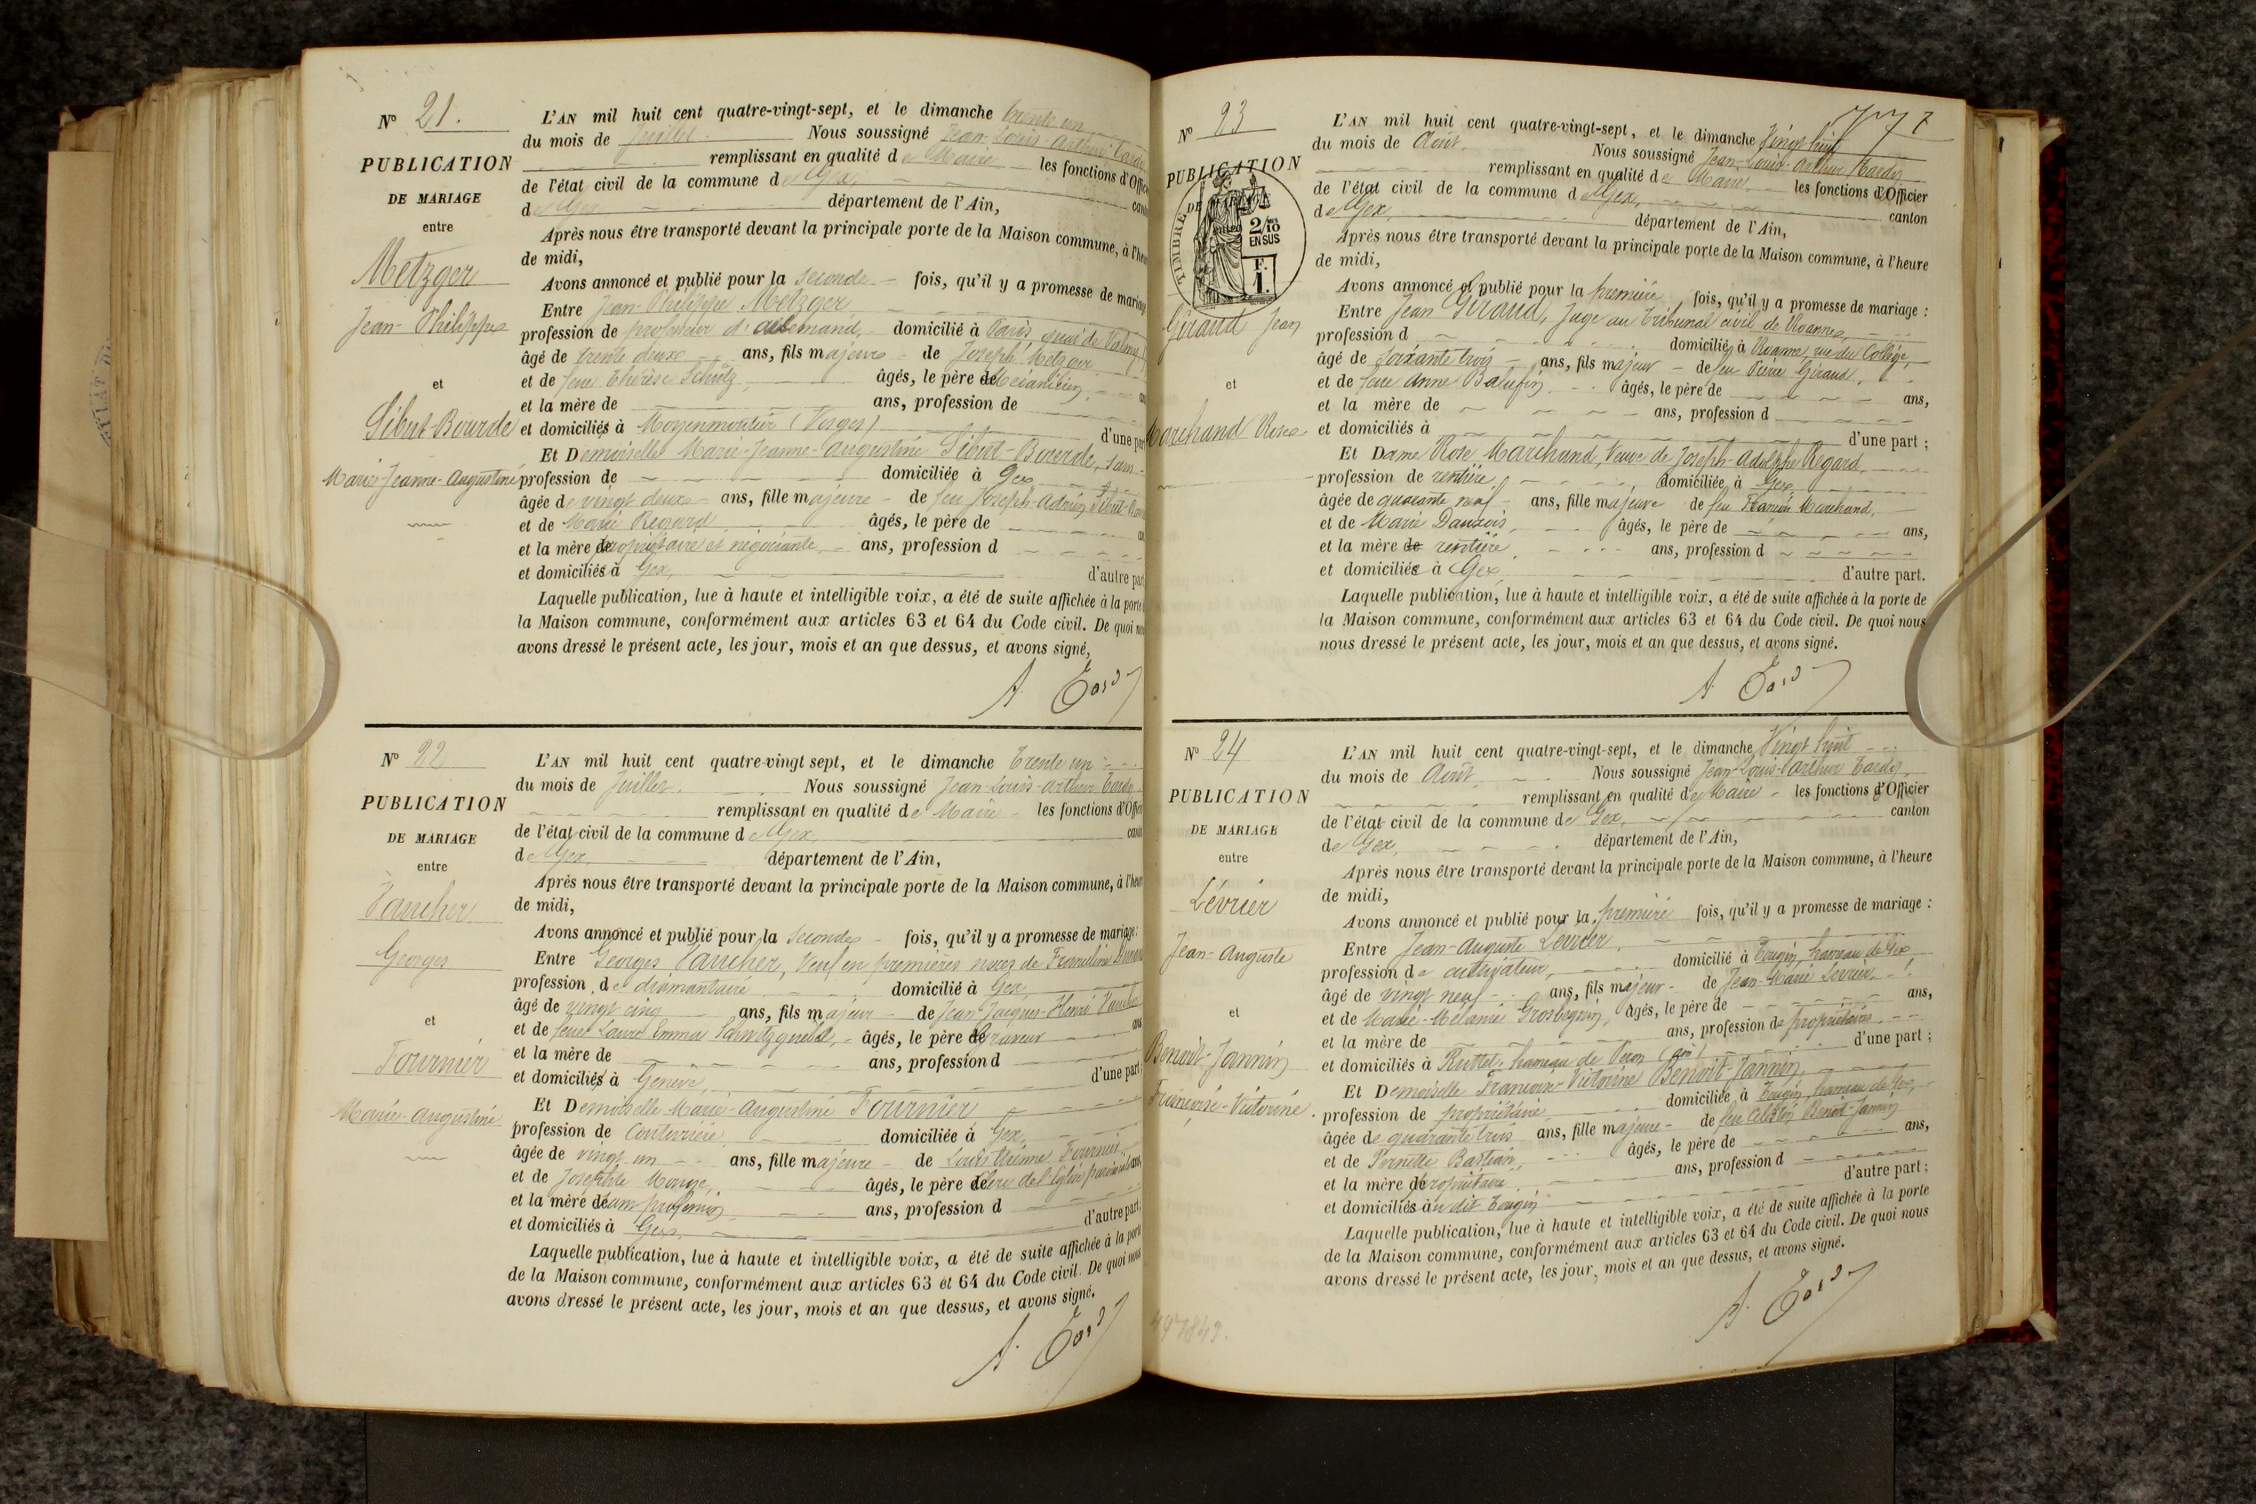 N° 21.
PUBLICATION
DE MARIAGE
entre
Metzger
Jean-Philippe
et
Sibut-Bourde
Marie-Jeanne-Augustine
L'AN mil huit cent quatre-vingt-sept, et le dimanche trente un
du mois de Juillet. Nous soussigné Jean-Louis Arthur Tardy
remplissant en qualité de Maire les fonctions d'Offic
de l'état civil de la commune de Gex, canto
de Gex département de l'Ain,
Après nous être transporté devant la principale porte de la Maison commune, à l'heu
de midi,
Avons annoncé et publié pour la seconde fois, qu'il y a promesse de mariag
Entre Jean-Philippe Metzger
profession de professeur d'allemand, domicilié à Paris quai de Valmy
âgé de trente deux ans, fils majeur de Joseph Metzger
et de feue Thérèse Schütz, âgés, le père de Mécanicien,
et la mère de ans, profession de
et domiciliés à Moyenmoutier (Vosges) d'une part
Et Demoiselle Marie-Jeanne-Augustine Sibut-Bourde, sans
profession de domiciliée à Gex
âgée de vingt deux ans, fille majeure de feu Joseph-Adrien Sibut-Bour
et de Marie Regard âgés, le père de
et la mère de propriétaire et négociante, ans, profession d
et domiciliés à Gex, d'autre part
Laquelle publication, lue à haute et intelligible voix, a été de suite affichée à la porte
la Maison commune, conformément aux articles 63 et 64 du Code civil. De quoi no
avons dressé le présent acte, les jour, mois et an que dessus, et avons signé,
A. Tardy
N° 22
PUBLICATION
DE MARIAGE
entre
Vaucher
Georges
et
Fournier
Marie-Augustine
L'AN mil huit cent quatre-vingt sept, et le dimanche trente un
du mois de Juillet. Nous soussigné Jean-Louis-Arthur Tardy
remplissant en qualité de Maire les fonctions d'Offic
de l'état civil de la commune de Gex canto
de Gex, département de l'Ain,
Après nous être transporté devant la principale porte de la Maison commune, à l'heur
de midi,
Avons annoncé et publié pour la seconde fois, qu'il y a promesse de mariage:
Entre Georges Vaucher, veuf en premières noces de
profession de diamantaire domicilié à Gex,
âgé de vingt cinq ans, fils majeur de Jean-Jacques-Henri Vaucher
et de feue Laure Emma âgés, le père de graveur ans
et la mère de ans, profession d
et domiciliés à Genève d'une part
Et Demoiselle Marie-Augustine Fournier
profession de couturière domiciliée à Gex,
âgée de vingt un ans, fille majeure de Louis Fournier
et de Josephte âgés, le père de ans,
et la mère de sans profession ans, profession d
et domiciliés à Gex, d'autre part.
Laquelle publication, lue à haute et intelligible voix, a été de suite affichée à la porte
de la Maison commune, conformément aux articles 63 et 64 du Code civil. De quoi nous
avons dressé le présent acte, les jour, mois et an que dessus, et avons signé.
A. Tardy
N° 23
PUBLICATION
DE
TIMBRE
2/10
EN SUS
F.
1.
Giraud Jean
et
Marchand Rose
L'AN mil huit cent quatre-vingt-sept, et le dimanche Vingt huit
du mois de Août. Nous soussigné Jean-Louis-Arthur Tardy
remplissant en qualité de Maire les fonctions d'Officier
de l'état civil de la commune de Gex, canton
de Gex, département de l'Ain,
Après nous être transporté devant la principale porte de la Maison commune, à l'heure
de midi,
Avons annoncé et publié pour la première fois, qu'il y a promesse de mariage :
Entre Jean Giraud, Juge au Tribunal civil de Roanne,
profession d domicilié à Roanne, rue du Collège,
âgé de soixante trois ans, fils majeur de feu Pierre Giraud,
et de feue Anne âgés, le père de ans,
et la mère de ans, profession d
et domiciliés à d'une part ;
Et Dame Rose Marchand, Veuve de Joseph-Adolphe Regard,
profession de rentière domiciliée à Gex,
âgée de quarante neuf ans, fille majeure de feu Marchand,
et de Marie Danzois, âgés, le père de ans,
et la mère de rentière ans, profession d
et domiciliée à Gex, d'autre part.
Laquelle publication, lue à haute et intelligible voix, a été de suite affichée à la porte de
la Maison commune, conformément aux articles 63 et 64 du Code civil. De quoi nous
nous dressé le présent acte, les jour, mois et an que dessus, et avons signé.
A. Tardy
N° 24
PUBLICATION
DE MARIAGE
entre
Lévrier
Jean-Auguste
et
Benoit-Jannin
Françoise-Victorine.
L'AN mil huit cent quatre-vingt-sept, et le dimanche Vingt huit
du mois de Août Nous soussigné Jean-Louis-Arthur Tardy,
remplissant en qualité de Maire les fonctions d'Officier
de l'état civil de la commune de Gex, canton
de Gex, département de l'Ain,
Après nous être transporté devant la principale porte de la Maison commune, à l'heure
de midi,
Avons annoncé et publié pour la première fois, qu'il y a promesse de mariage :
Entre Jean-Auguste Levrier,
profession de cultivateur, domicilié à Tougin, hameau de Gex
âgé de vingt neuf ans, fils majeur de Jean-Marie Levrier
et de Marie-Mélanie Grosbignin, âgés, le père de ans,
et la mère de ans, profession de propriétaires
et domiciliés à hameau de Péron (Ain) d'une part ;
Et Demoiselle Françoise-Victorine Benoit-Jannin
profession de propriétaire domiciliée à Tougin, hameau de Gex,
âgée de quarante trois ans, fille majeure de feu Célestin Benoit-Jannin
et de Pernette Bastian, âgés, le père de ans,
et la mère de propriétaire ans, profession d
et domiciliés àu dit Tougin d'autre part ;
Laquelle publication, lue à haute et intelligible voix, a été de suite affichée à la porte
de la Maison commune, conformément aux articles 63 et 64 du Code civil. De quoi nous
avons dressé le présent acte, les jour, mois et an que dessus, et avons signé.
A. Tardy